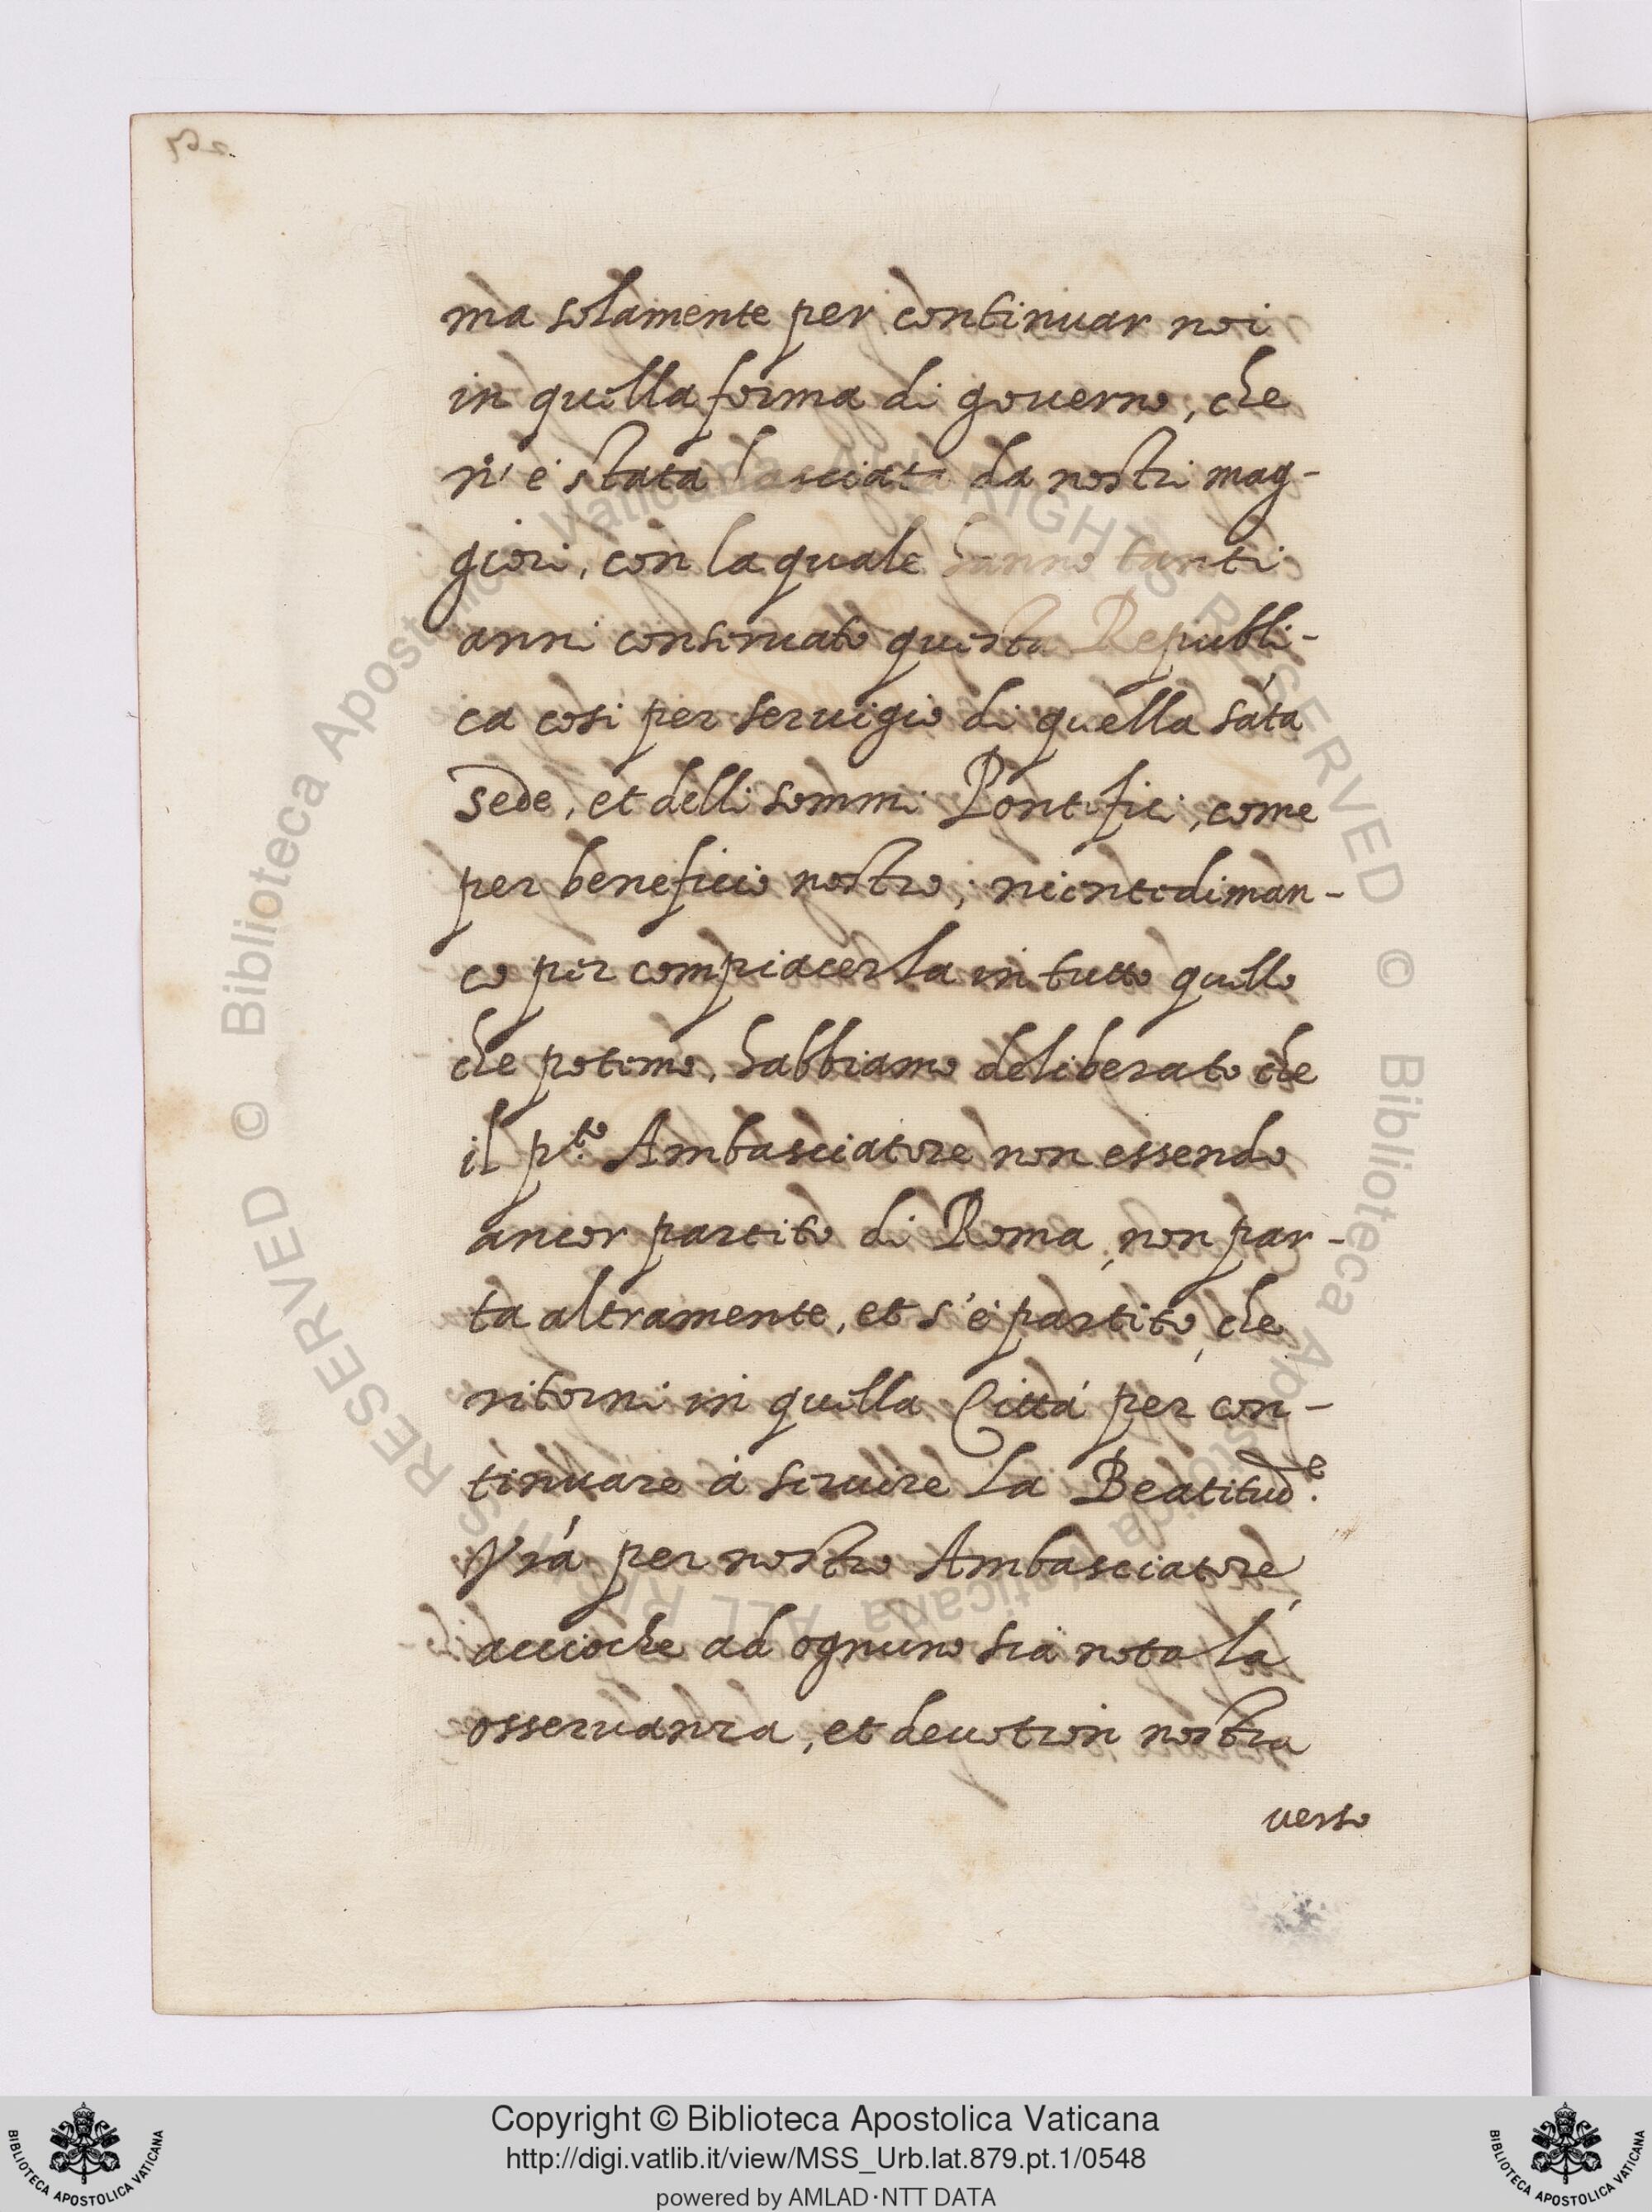 ma solamente per continuar noi
in quella forma di gouerno, che
n'è stata lasciata da nostri mag-
giori, con la quale hanno tanti
anni conseruato questa Republi-
ca cosi per seruigio di quella sãta
sede, et delli sommi Pontefici, come
per beneficio nostro; nientediman-
co per compiacerla in tutto quello
che potemo, habbiamo deliberato che
il p.to Ambasciatore non essendo
ancor partito di Roma, non par-
ta altramente, et s'è partito, che
ritorni in quella Città per con-
tinuare à seruire la Beatitud.e
Vrã per nostro Ambasciatore,
accioche ad ognuno sia nota la
osseruanza, et deuotion nostra
verso
Copyright © Biblioteca Apostolica Vaticana
http://digi.vatlib.it/view/MSS_Urb.lat.879.pt.1/0548
powered by AMLAD·NTT DATA
BIBLIOTECA APOSTOLICA VATICANA
BIBLIOTECA APOSTOLICA VATICANA
© Biblioteca Apostolica Vaticana ALL RIGHTS RESERVED © Biblioteca Apostolica Vaticana ALL RIGHTS RESERVED